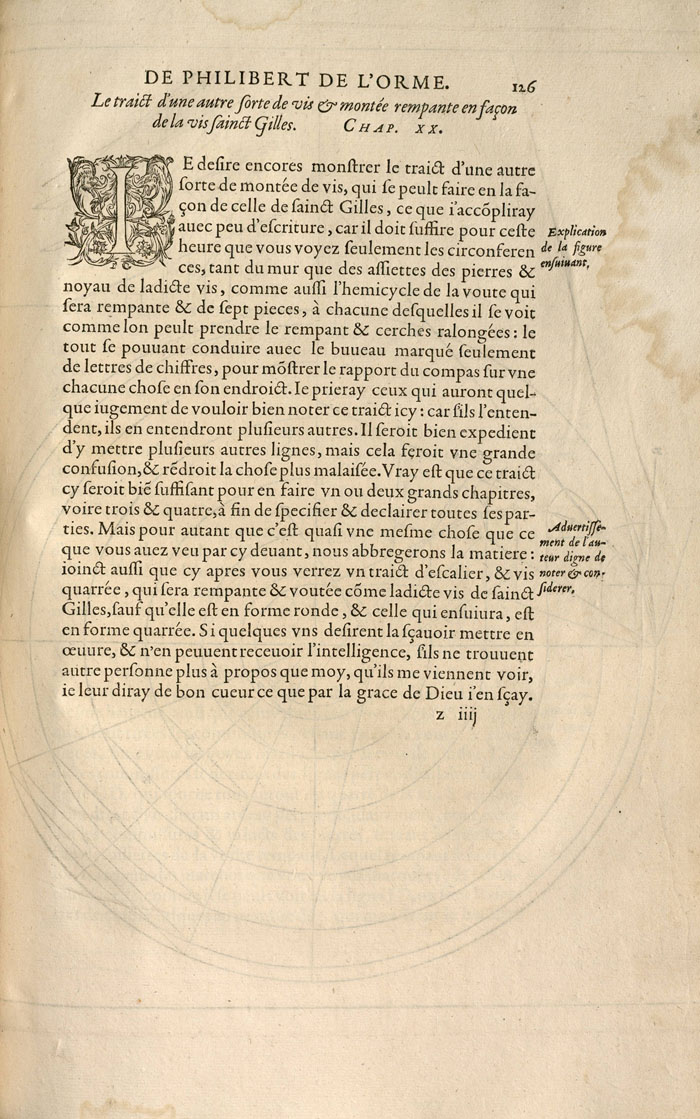 DE PHILIBERT DE L'ORME. 126
Le traict d'une autre ſorte de vis & montée rempante en façon
de la vis ſainct Gilles. CHAP. XX.
IE deſire encores monſtrer le traict d'une autre
ſorte de montée de vis, qui ſe peult faire en la fa-
çon de celle de ſainct Gilles, ce que i'accõpliray
auec peu d'eſcriture, car il doit ſuffire pour ceſte
heure que vous voyez ſeulement les circonferen
ces, tant du mur que des aſſiettes des pierres &
noyau de ladicte vis, comme auſſi l'hemicycle de la voute qui
ſera rempante & de ſept pieces, à chacune deſquelles il ſe voit
comme lon peult prendre le rempant & cerches ralongées: le
tout ſe pouuant conduire auec le buueau marqué ſeulement
de lettres de chiffres, pour mõſtrer le rapport du compas ſur vne
chacune choſe en ſon endroict. Ie prieray ceux qui auront quel-
que iugement de vouloir bien noter ce traict icy: car ſils l'enten-
dent, ils en entendront pluſieurs autres. Il ſeroit bien expedient
d'y mettre pluſieurs autres lignes, mais cela feroit vne grande
confuſion, & rẽdroit la choſe plus malaiſée. Vray eſt que ce traict
cy ſeroit biẽ ſuffiſant pour en faire vn ou deux grands chapitres,
voire trois & quatre, à fin de ſpecifier & declairer toutes ſes par-
ties. Mais pour autant que c'eſt quaſi vne meſme choſe que ce
que vous auez veu par cy deuant, nous abbregerons la matiere:
ioinct auſſi que cy apres vous verrez vn traict d'eſcalier, & vis
quarrée, qui ſera rempante & voutée cõme ladicte vis de ſainct
Gilles, ſauf qu'elle eſt en forme ronde, & celle qui enſuiura, eſt
en forme quarrée. Si quelques vns deſirent la ſçauoir mettre en
œuure, & n'en peuuent receuoir l'intelligence, ſils ne trouuent
autre perſonne plus à propos que moy, qu'ils me viennent voir,
ie leur diray de bon cueur ce que par la grace de Dieu i'en ſçay.
z iiij
Explication
de la figure
enſuiuant.
Aduertiſſe-
ment de l'au-
teur digne de
noter & con-
ſiderer.